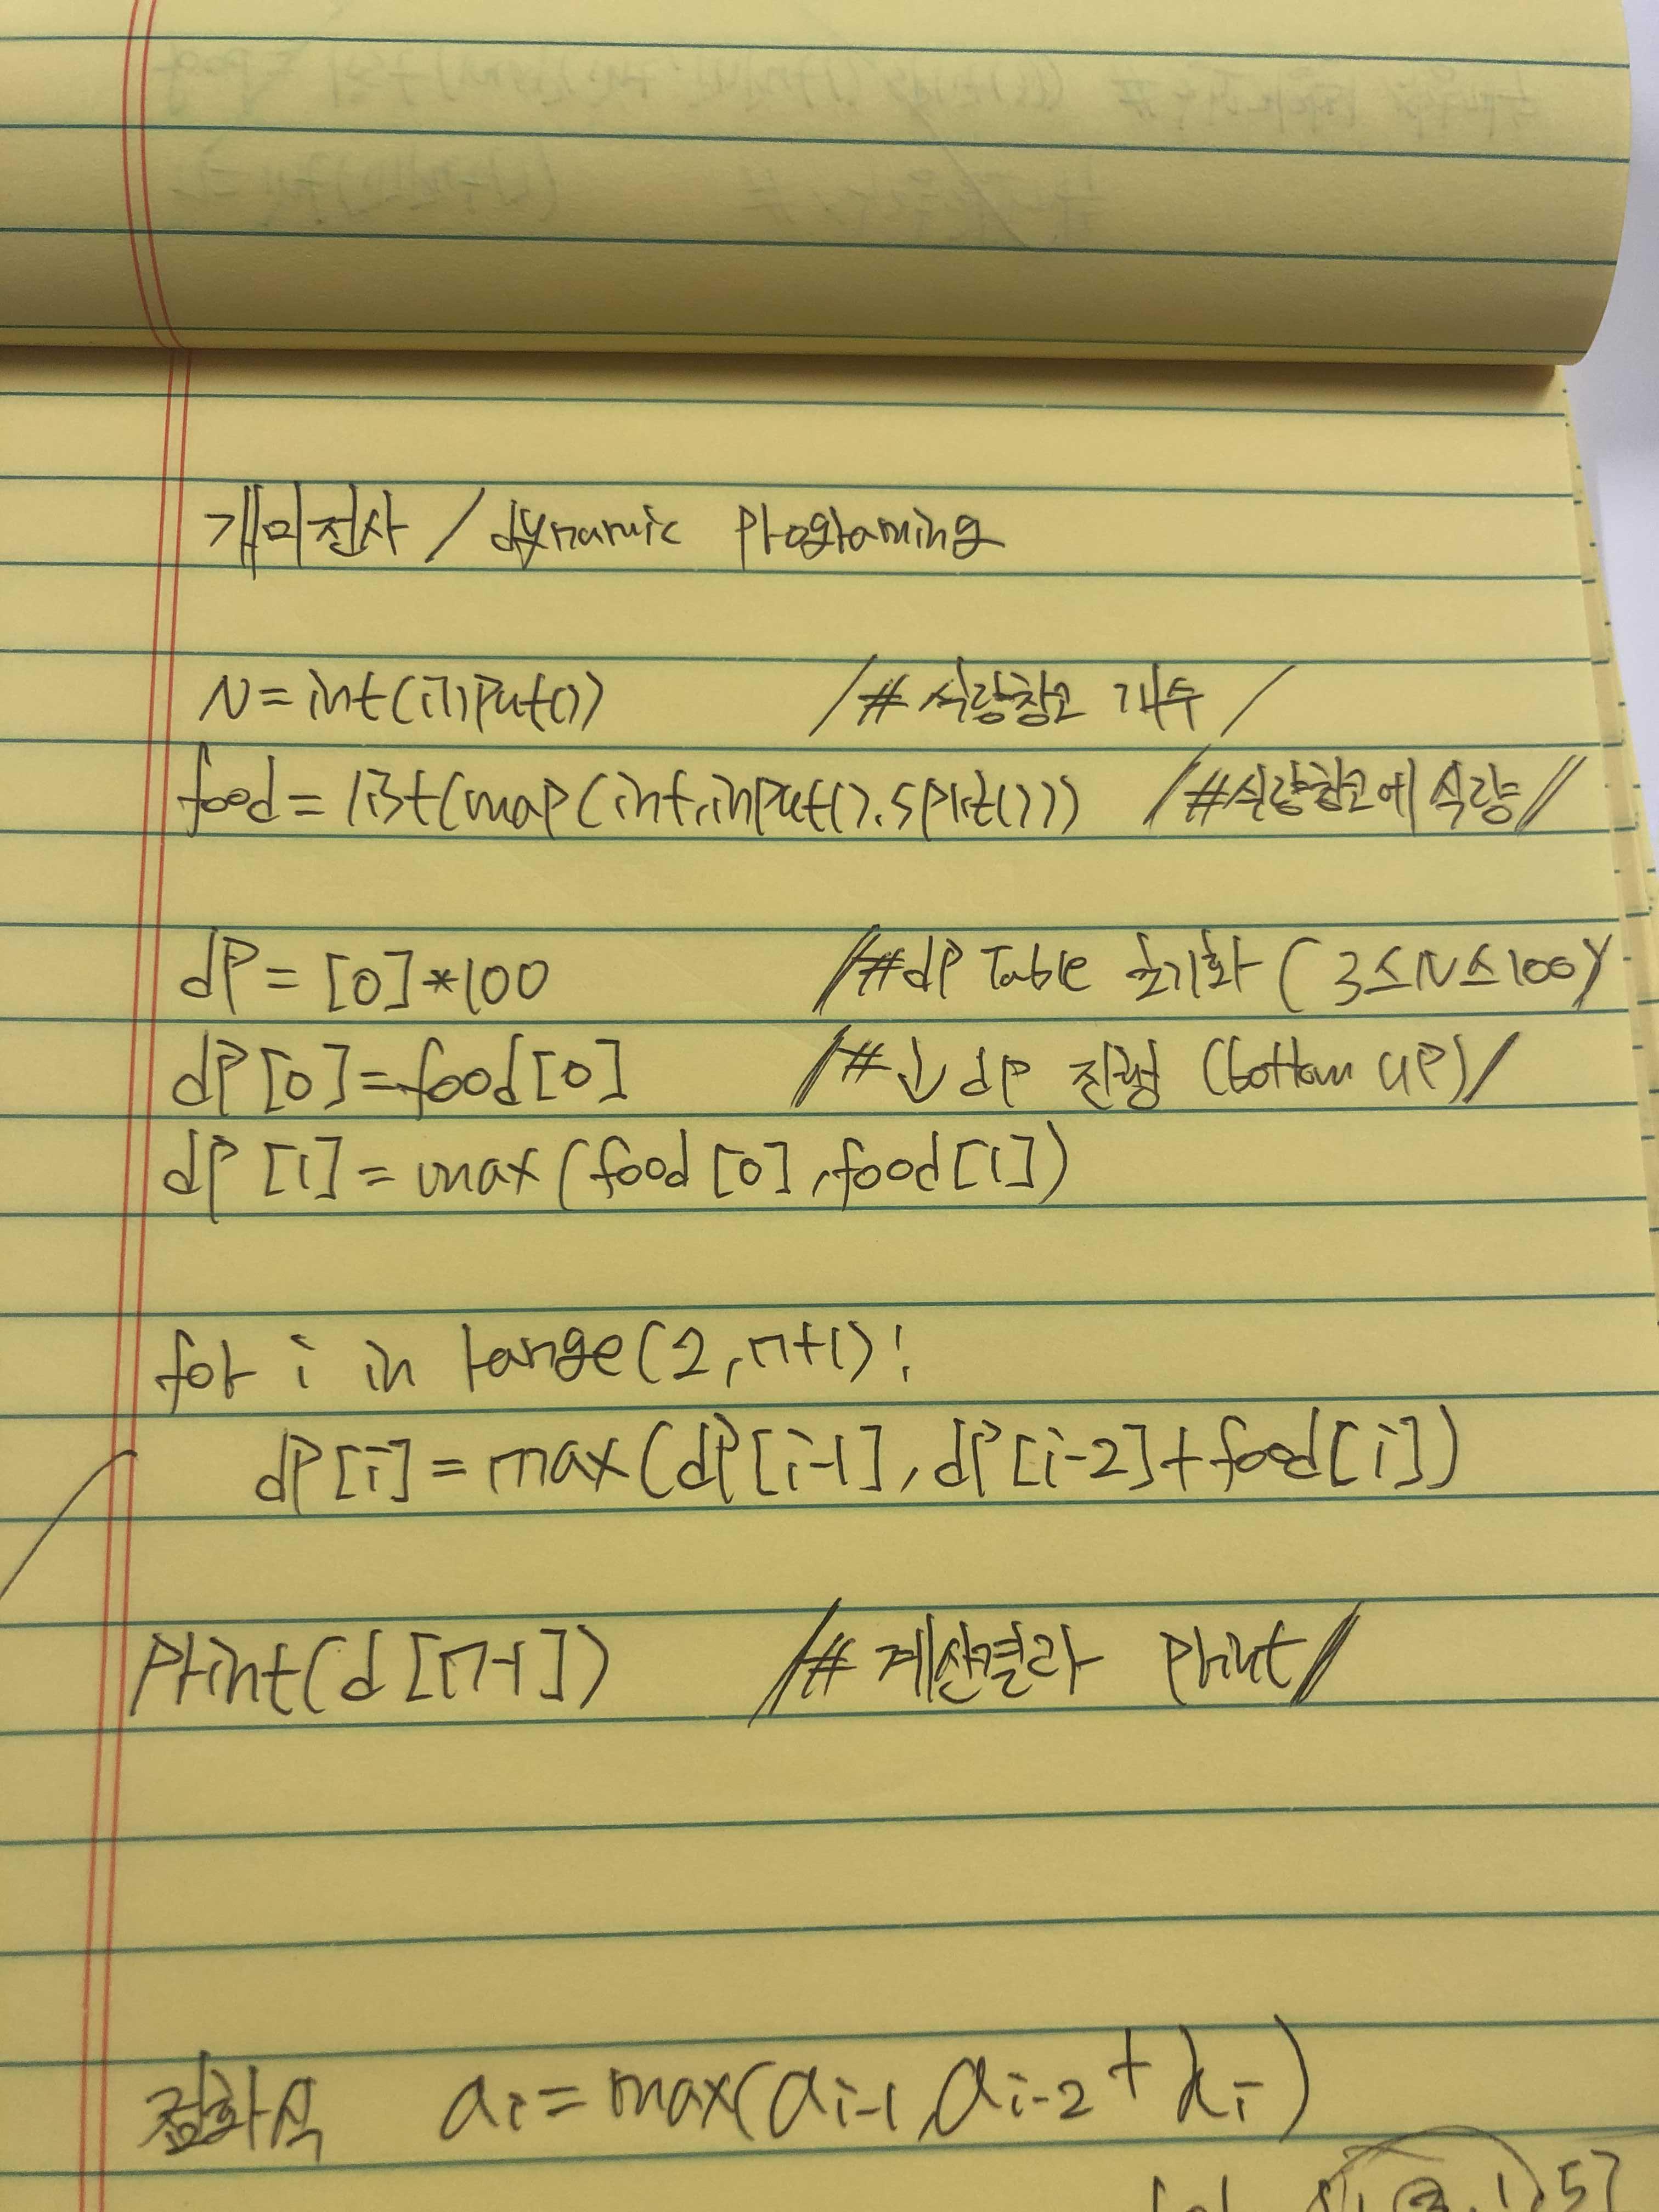 개미전사 / dynamic Programing
N = int(input()) /# 식량창고 개수 /
food = list(map(int,input().split())) /#식량창고에 식량//
dp = [0]*100 //#dp Table 초기화 ( 3≤N≤100)/
dp[0]=food[0] //# ↓ dp 진행 (bottom up)/
dp [1] = max(food[0],food[1])
for i in range(2,n+1):
dp[i] = max(dp[i-1], dp[i-2]+food[i])
Print(d[n-1]) //# 계산결과 print//
점화식 ai = max(ai-1, ai-2 + ki)